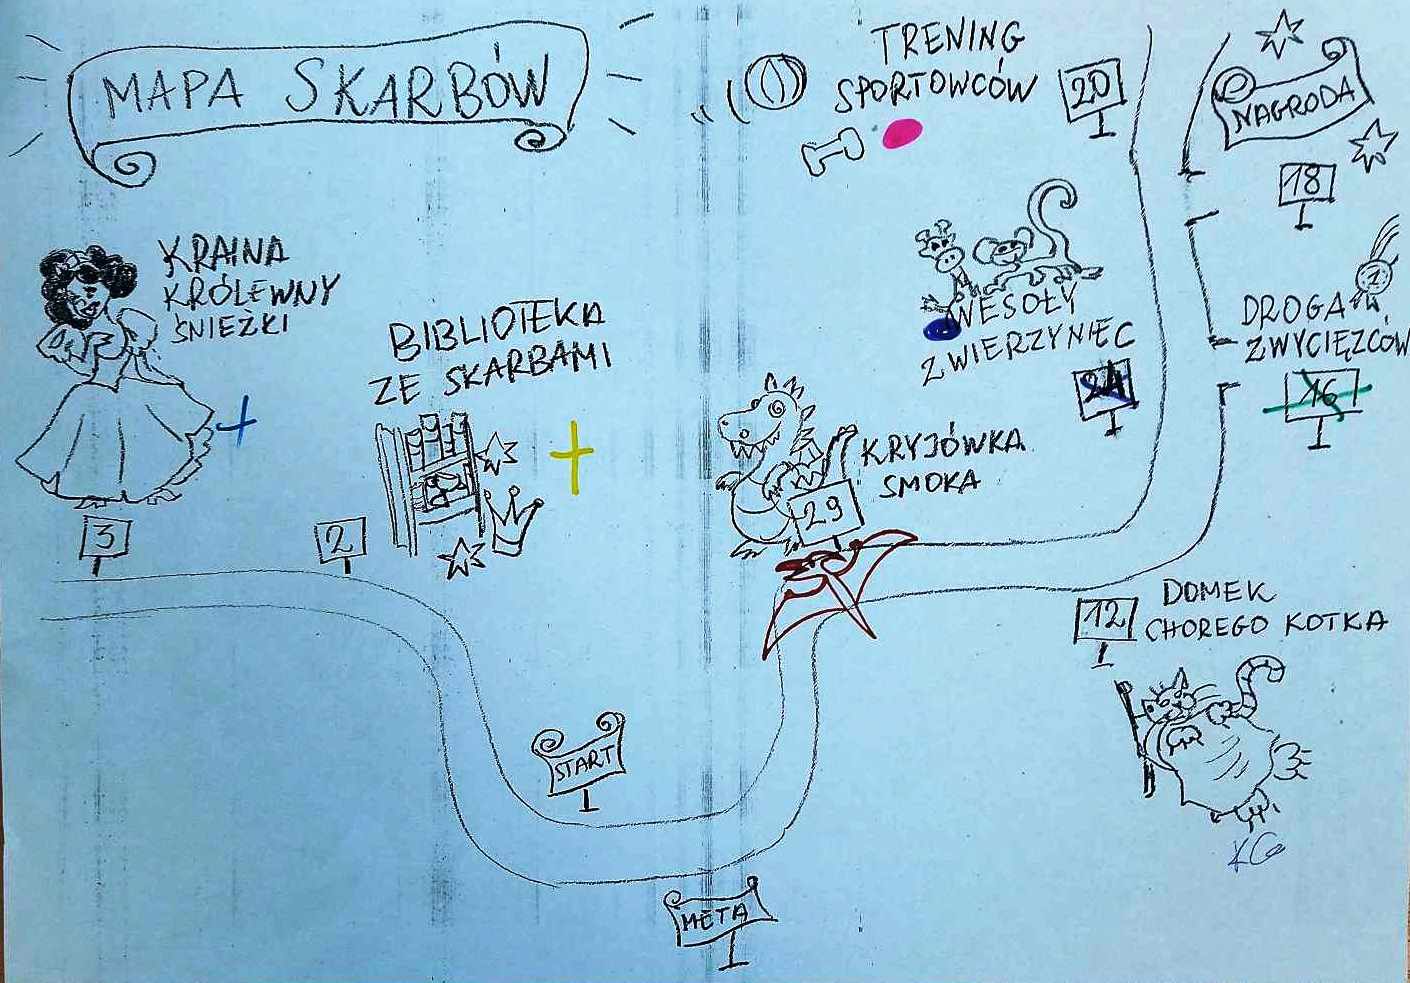 MAPA SKARBÓW
TRENING
SPORTOWCÓW
20
NAGRODA
18
KRAINA
KRÓLEWNY
ŚNIEŻKI
3
BIBLIOTEKA
ZE SKARBAMI
2
WESOŁY
ZWIERZYNIEC
24
DROGA
ZWYCIĘZCÓW
1
16
KRYJÓWKA
SMOKA
29
12
DOMEK
CHOREGO KOTKA
START
META